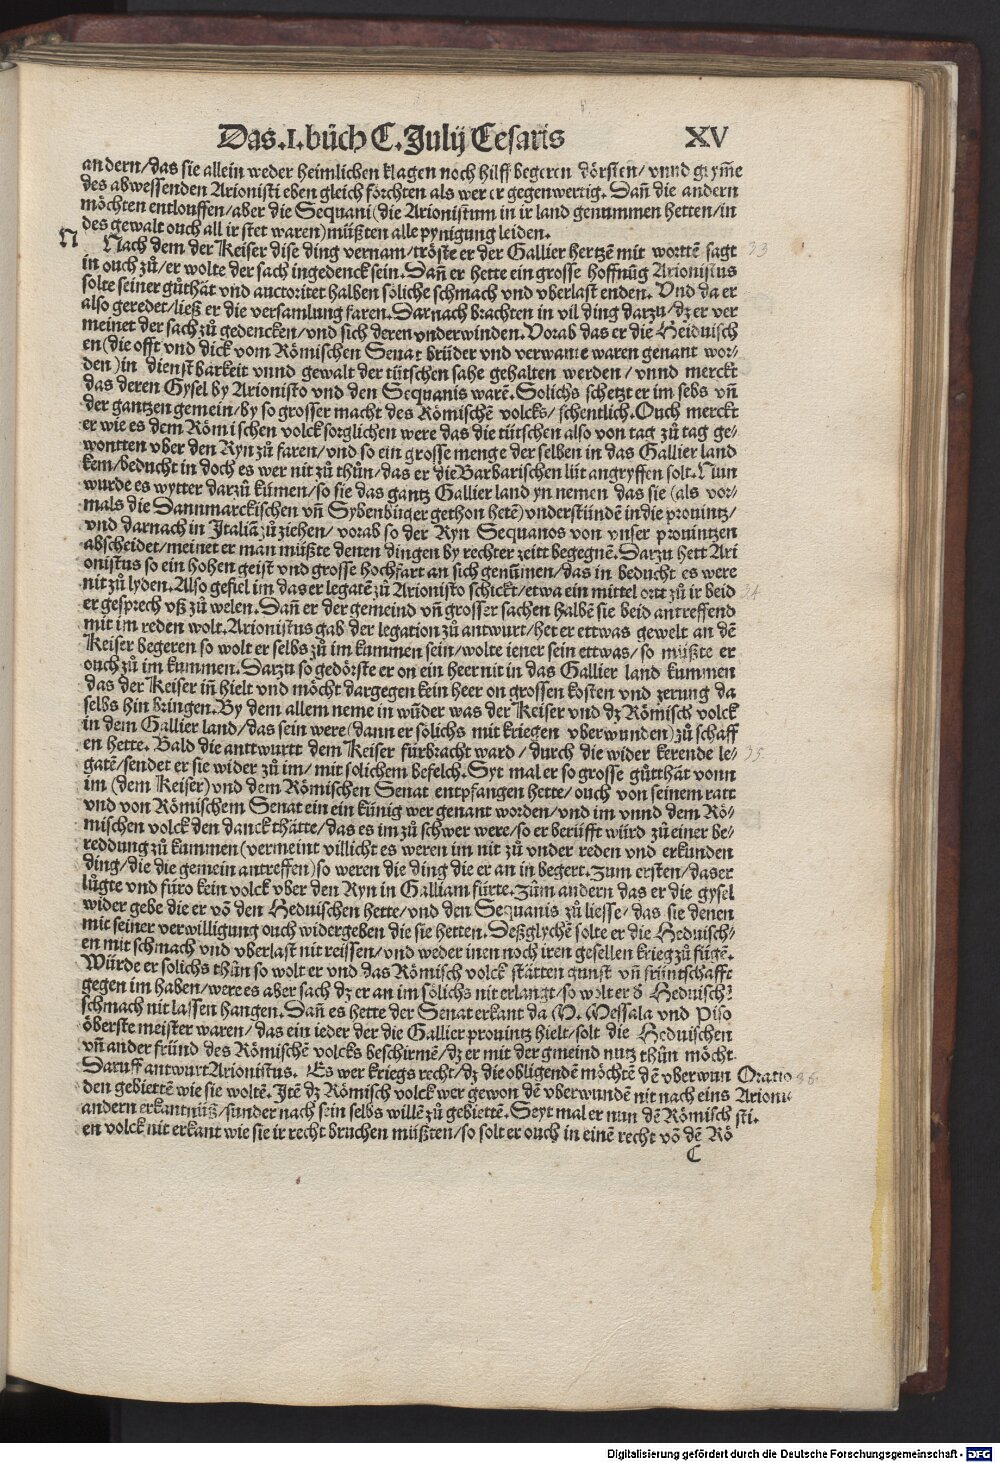 Das .I. bůch C. Julij Cesaris XV
andern/das sie allein weder heimlichen klagen noch hilff begeren dörsten/ vnnd grym̃e
des abwessenden Arionisti eben gleich förchten als wer er gegenwertig. Dañ die andern
möchten entlouffen/aber die Sequani (die Arionistum in ir land genummen hetten/in
des gewalt ouch all ir stet waren) müßten alle pynigung leiden.
N
Nach dem der Keiser dise ding vernam/tröste er der Gallier hertzẽ mit worttẽ sagt 33
in ouch zů/er wolte der sach ingedenck sein. Dañ er hette ein grosse hoffnũg Arionistus
solte seiner gůthät vnd auctoritet halben söliche schmach vnd vberlast enden. Vnd da er
also geredet/ließ er die versamlung faren. Darnach brachten in vil ding darzu/dz er ver
meinet der sach zů gedencken/vnd sich deren vnderwinden. Vorab das er die Heduisch
en (die offt vnd dick vom Römischen Senat brüder vnd verwante waren genant wor⸗
den) in dienstbarkeit vnnd gewalt der tütschen sahe gehalten werden/ vnnd merckt
das deren Gysel by Arionisto vnd den Sequanis warẽ. Solichs schetzt er im sebs vñ
der gantzen gemein/by so grosser macht des Römischẽ volcks/ schentlich. Ouch merckt
er wie es dem Römischen volck sorglichen were das die tütschen also von tag zů tag ge⸗
wontten vber den Ryn zů faren/vnd so ein grosse menge der selben in das Gallier land
kem/beducht in doch es wer nit zů thůn/das er die Barbarischen lüt angryffen solt. Nun
wurde es wytter darzů kũmen/so sie das gantz Gallier land yn nemen das sie (als vor⸗
mals die Dannmarckischen vñ Sybenbürger gethon hetẽ) vnderstünden in die prouintz/
vnd darnach in Italiã zů ziehen/ vorab so der Ryn Sequanos von vnser prouintzen
abscheidet/meinet er man müßte denen dingen by rechter zeitt begegnẽ. Darzu hett Ari
onistus so ein hohen geist vnd grosse hochfart an sich genũmen/das in beducht es were
nit zů lyden. Also gefiel im das er legatẽ zů Arionisto schickt/etwa ein mittel ortt zů ir beid 34
er gesprech vß zů welen. Dañ er der gemeind vñ grosser sachen halbẽ sie beid antreffend
mit im reden wolt. Arionistus gab der legation zů antwurt/het er ettwas gewelt an dẽ
Keiser begeren so wolt er selbs zů im kummen sein/wolte iener sein ettwas/so müßte er
ouch zů im kummen. Darzu so gedörste er on ein heer nit in das Gallier land kummen
das der Keiser iñ hielt vnd möcht dargegen kein heer on grossen kosten vnd zerung da
selbs hin bringen. By dem allem neme in wũder was der Keiser vnd dz Römisch volck
in dem Gallier land/das sein were (dann er sölichs mit kriegen vberwunden) zů schaff
en hette. Bald die anttwurtt dem Keiser fürbracht ward/ durch die wider kerende le⸗ 35
gatẽ/sendet er sie wider zů im/mit solichem befelch. Syt mal er so grosse gůtthät vonn
im (dem Keiser) vnd dem Römischen Senat entpfangen hette/ ouch von seinem ratt
vnd von Römischem Senat ein ein künig wer genant worden/vnd im vnnd dem Rö⸗
mischen volck den danck thätte/das es im zů schwer were/so er berüfft würd zů einer be⸗
reddung zů kummen (vermeint villicht es weren im nit zů vnder reden vnd erkunden
ding/die die gemein antreffen) so weren die ding die er an in begert. Zum ersten/das er
lůgte vnd füro kein volck vber den Ryn in Galliam fürte. Zům andern das er die gysel
wider gebe die er võ den Heduischen hette/vnd den Sequanis zů liesse/das sie denen
mit seiner verwilligung ouch widergeben die sie hetten. Deßglychẽ solte er die Heduisch⸗
en mit schmach vnd vberlast nit reissen/vnd weder inen noch iren gesellen krieg zů fügẽ.
Würde er solichs thůn so wolt er vnd das Römisch volck stätten gunst vñ früntschafft
gegen im haben/were es aber sach dz er an im sölichs nit erlangt/so wolt er d̕ Heduischẽ
schmach nit lassen hangen. Dañ es hette der Senat erkant da M. Messala vnd Piso
öberste meister waren/das ein ieder der die Gallier prouintz hielt/solt die Heduischen
vñ ander fründ des Römischẽ volcks beschirmẽ/dz er mit der gmeind nutz thůn möcht.
Daruff antwurt Arionistus. Es wer kriegs recht/dz die obligendẽ möchtẽ dẽ vberwun Oratio 36
den gebiettẽ wie sie woltẽ. Itẽ dz Römisch volck wer gewon dẽ vberwundẽ nit nach eins Arioni
andern erkantnüß/sunder nach sein selbs willẽ zů gebiettẽ. Seyt mal er nun dẽ Römisch sti.
en volck nit erkant wie sie ir recht bruchen müßten/so solt er ouch in einẽ recht võ dẽ Rö
C
Digitalisierung gefördert durch die Deutsche Forschungsgemeinschaft - DFG